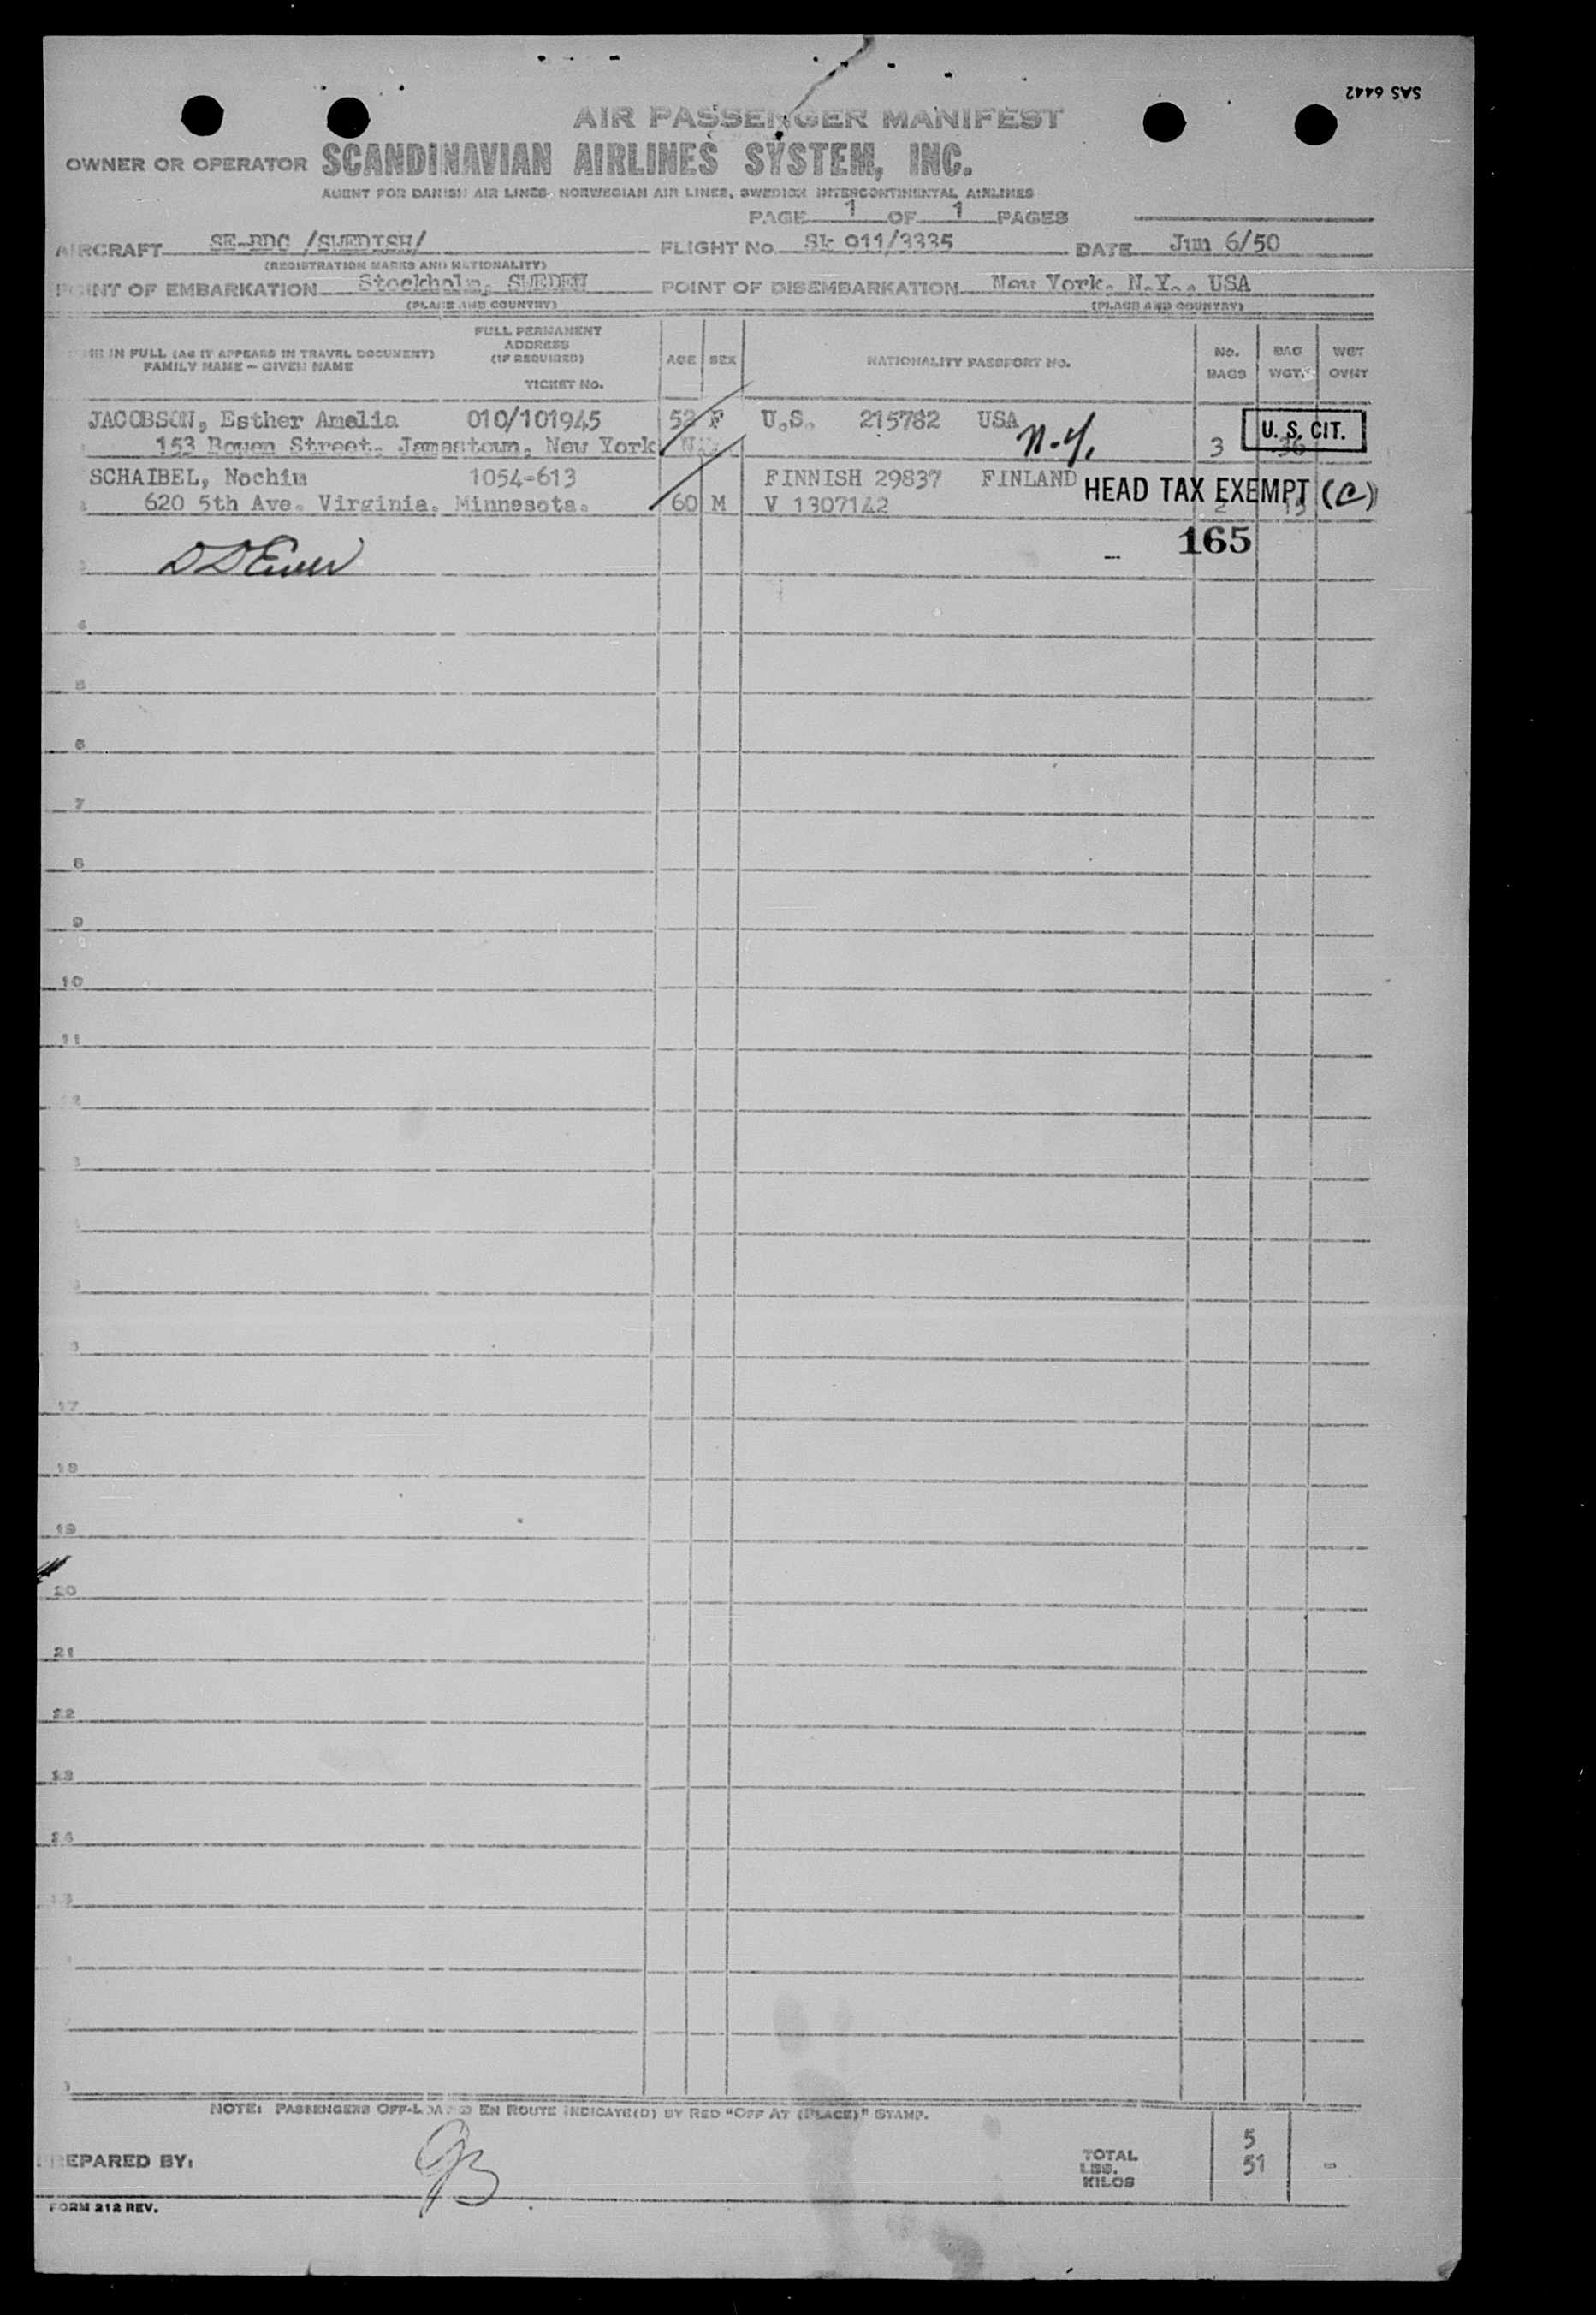 SAS 6442
AIR PASSENGER MANIFEST
OWNER OR OPERATOR SCANDINAVIAN AIRLINES SYSTEM, INC.
AGENT FOR DANISH AIR LINES, NORWEGIAN AIR LINES, SWEDISH INTERCONTINENTAL AIRLINES
PAGE 1 OF 1 PAGES
AIRCRAFT SE-BDC /SWEDISH/ FLIGHT No. SK 911/3335 DATE Jun 6/50
(REGISTRATION MARKS AND NATIONALITY)
POINT OF EMBARKATION Stockholm, SWEDEN POINT OF DISEMBARKATION New York, N.Y., USA
(PLACE AND COUNTRY) (PLACE AND COUNTRY)
IN FULL (AS IT APPEARS IN TRAVEL DOCUMENT) FAMILY NAME – GIVEN NAME
FULL PERMANENT ADDRESS (IF REQUIRED)
TICKET No.
AGE SEX NATIONALITY PASSPORT No. No. BAGS BAG WGT. WGT OVNT
JACOBSON, Esther Amelia 010/101945 52 F U.S. 215782 USA U.S. CIT.
153 Bowen Street, Jamestown, New York N.Y. 3 36
SCHAIBEL, Nochim 1054-613 FINNISH 29837 FINLAND HEAD TAX EXEMPT (C)
620 5th Ave. Virginia, Minnesota. 60 M V 1307142 2 15
165
4
5
6
7
8
9
10
11
12
3
17
18
19
20
21
22
23
24
NOTE: PASSENGERS OFF-LOADED EN ROUTE INDICATE(D) BY RED "OFF AT (PLACE)" STAMP.
PREPARED BY: GB TOTAL 5
LBS. 51 -
KILOS
FORM 212 REV.